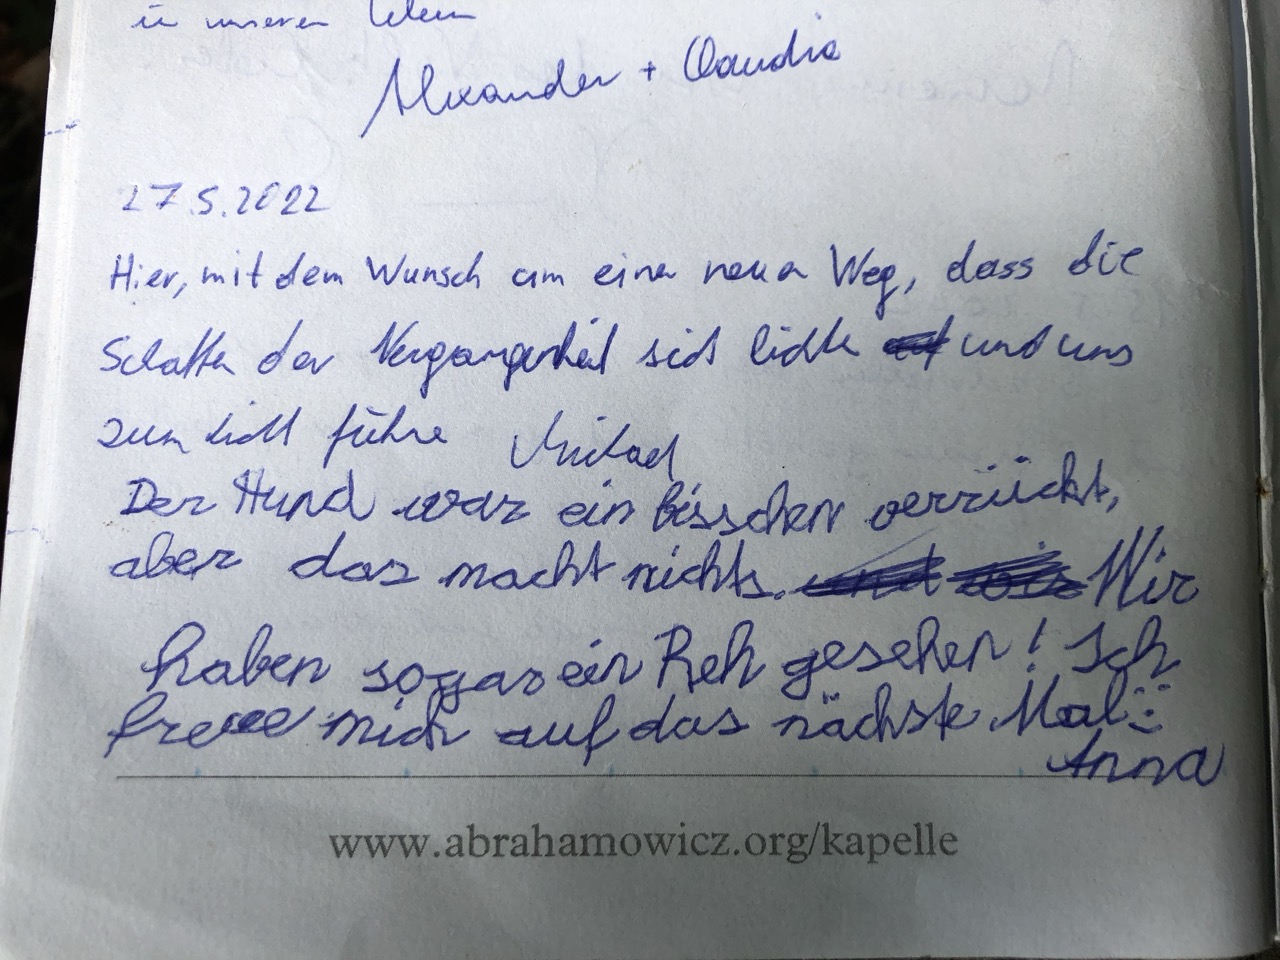 in unseren Leben
Alexander + Claudia
27.5.2022
Hier, mit dem Wunsch um einen neuen Weg, dass die
Schatten der Vergangenheit sich lichten und uns
zum Licht führen Michael
Der Hund war ein bisschen verrückt,
aber das macht nichts. Wir
haben sogar ein Reh gesehen! Ich
freue mich auf das nächste Mal :)
Anna
www.abrahamowicz.org/kapelle